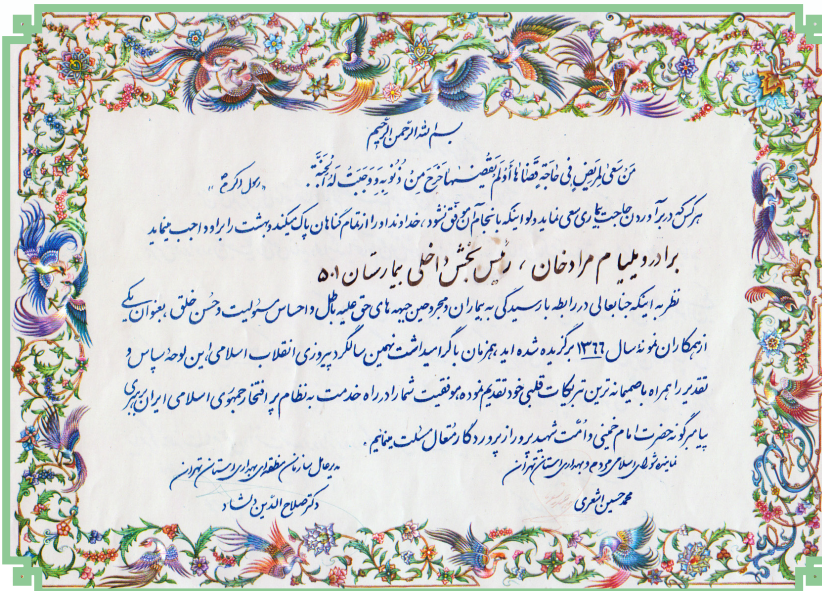 بسم الله الرحمن الرحیم
مَن سَعی لِمَریضٍ فی حاجَةٍ قَضاها أَولَم یَقضِها خَرَجَ مِن ذُنُوبِهِ وَوَجَبَت لَهُ الجَنَّةَ . «رسول اکرم ص»
هر کس که در برآوردن حاجت بیماری سعی نماید ولو اینکه بانجام آن موفق نشود ، خداوند او را از تمام گناهان پاک میکند و بهشت را بر او واجب مینماید
برادر ویلیام مرادخان ، رئیس بخش داخلی بیمارستان ۵۰۱
نظر به اینکه جنابعالی در رابطه با رسیدگی به بیماران و مجروحین جبهه های حق علیه باطل و احساس مسئولیت و حسن خلق ، بعنوان یکی
از همکاران نمونهٔ سال ۱۳۶۶ برگزیده شده اید ، همزمان با گرامیداشت نهمین سالگرد پیروزی انقلاب اسلامی این لوحهٔ سپاس و
تقدیر را همراه با صمیمانه ترین تبریکات قلبی خود تقدیم نموده موفقیت شما را در راه خدمت به نظام پر افتخار جمهوری اسلامی ایران برهبری
پیامبرگونه حضرت امام خمینی و امت شهید پرور از پروردگار متعال مسئلت مینمایم .
نماینده شورای اسلامی مردم در بهداری استان تهران
محمد حسین اشعری
مدیر عامل سازمان منطقه ای بهداری استان تهران
دکتر صلاح الدین دلشاد